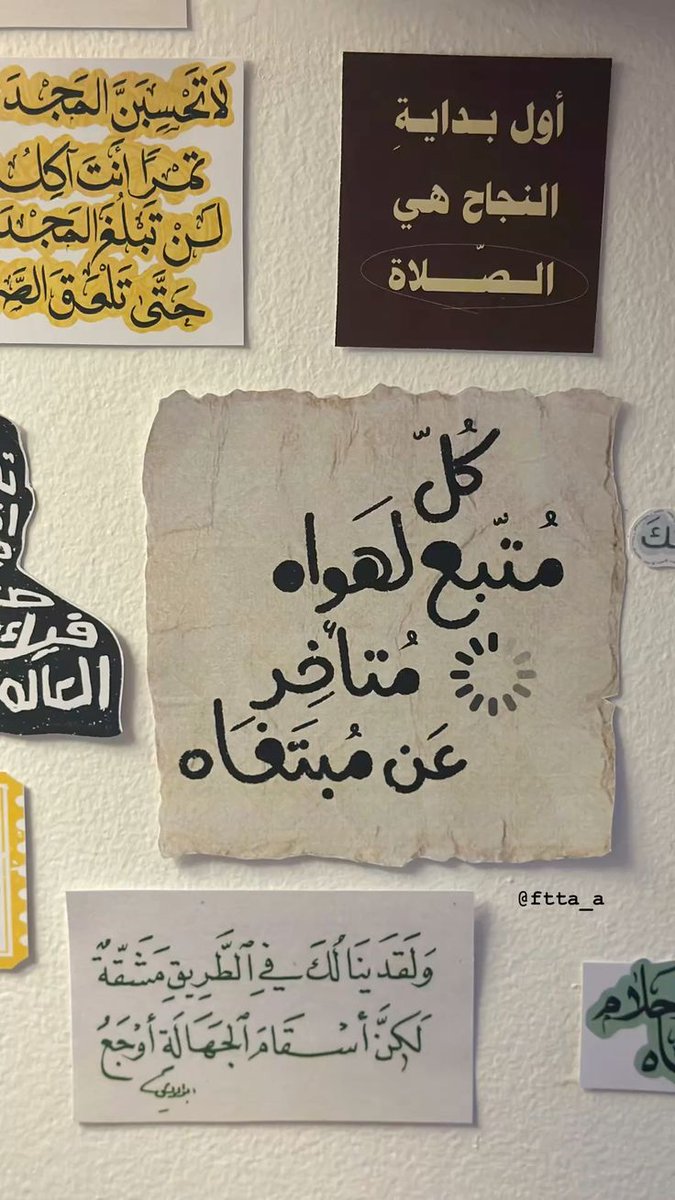 لَا تَحْسِبَنَّ المَجْدَ
تَمْرًا أَنْتَ آكِلُ
لَنْ تَبْلُغَ المَجْدَ
حَتَّى تَلْعَقَ
أول بدايةِ
النجاح هي
الصّلاة
كُلّ
مُتّبع لهَواه
مُتأخِر
عَن مُبتَغَاه
فيك
العالم
@ftta_a
وَلَقَد يَنَالُكَ فِي الطَّرِيقِ مَشَقَّةٌ
لَكِنَّ أَسْقَامَ الجَهَالَةِ أَوْجَعُ